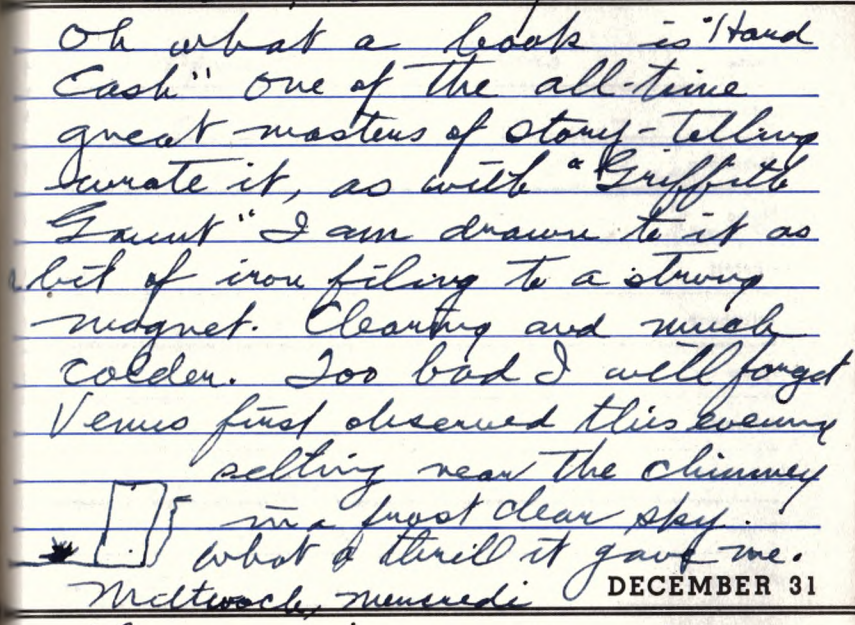 Oh what a book is "Hard
Cash" one of the all-time
great masters of story-telling
wrote it, as with "Griffith
Gaunt" I am drawn to it as
a bit of iron filing to a strong
magnet. Clearing and much
colder. Too bad I will forget
Venus first observed this evening
setting near the chimney
in a frost clear sky.
what a thrill it gave me.
Mittwoch, mercredi
DECEMBER 31